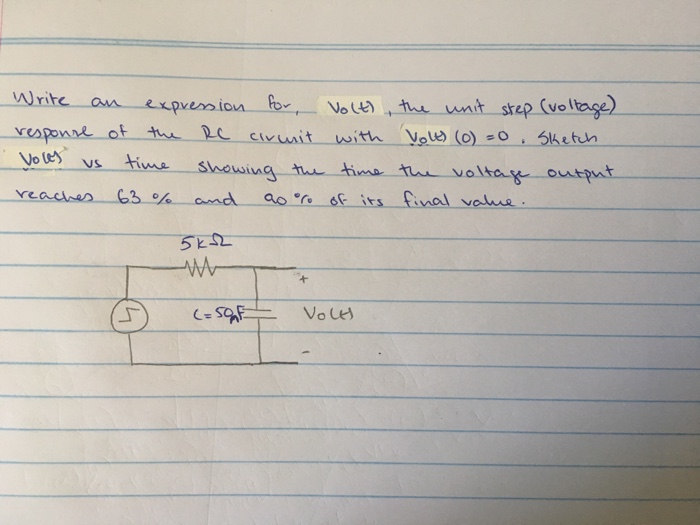 Write an expression for, Vo(t), the unit step (voltage)
response of the RC circuit with Vo(t) (0) = 0. Sketch
Vo(t) vs time showing the time the voltage output
reaches 63 % and 90 % of its final value.
5kΩ
+
C = 50nF Vo(t)
-